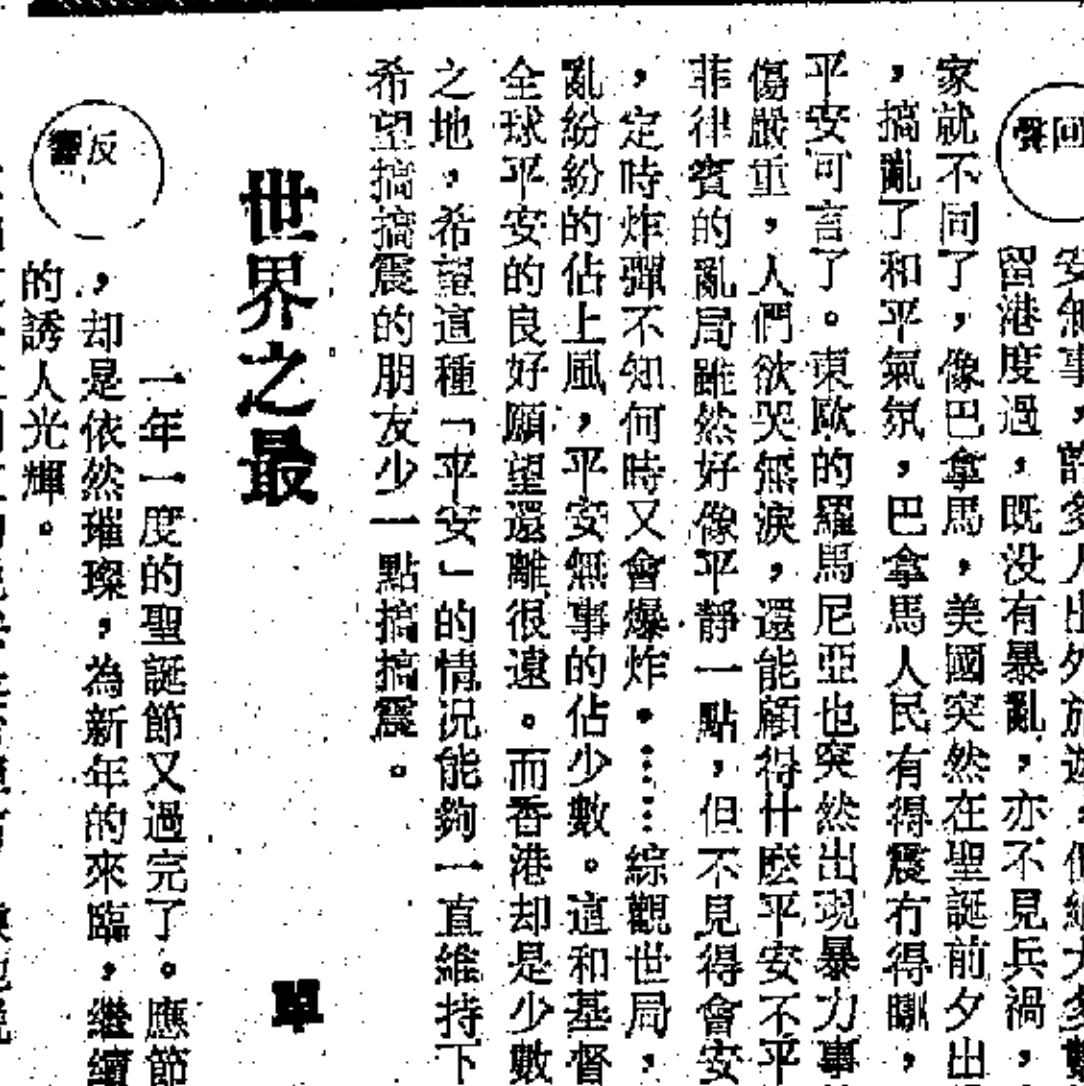 回聲
安無事，許多人出外旅遊，但絕大多數
留港度過，既没有暴亂，亦不見兵禍，
家就不同了，像巴拿馬，美國突然在聖誕前夕出
，搞亂了和平氣氛，巴拿馬人民有得震冇得瞓，
平安可言了。東歐的羅馬尼亞也突然出現暴力事
傷嚴重，人們欲哭無淚，還能顧得什麽平安不平
菲律賓的亂局雖然好像平靜一點，但不見得會安
，定時炸彈不知何時又會爆炸。……綜觀世局，
亂紛紛的佔上風，平安無事的佔少數。這和基督
全球平安的良好願望還離很遠。而香港却是少數
之地，希望這種「平安」的情況能夠一直維持下
希望搞搞震的朋友少一點搞搞震。
世界之最
單
反響
一年一度的聖誕節又過完了。應節
，却是依然璀璨，為新年的來臨，繼續
的誘人光輝。